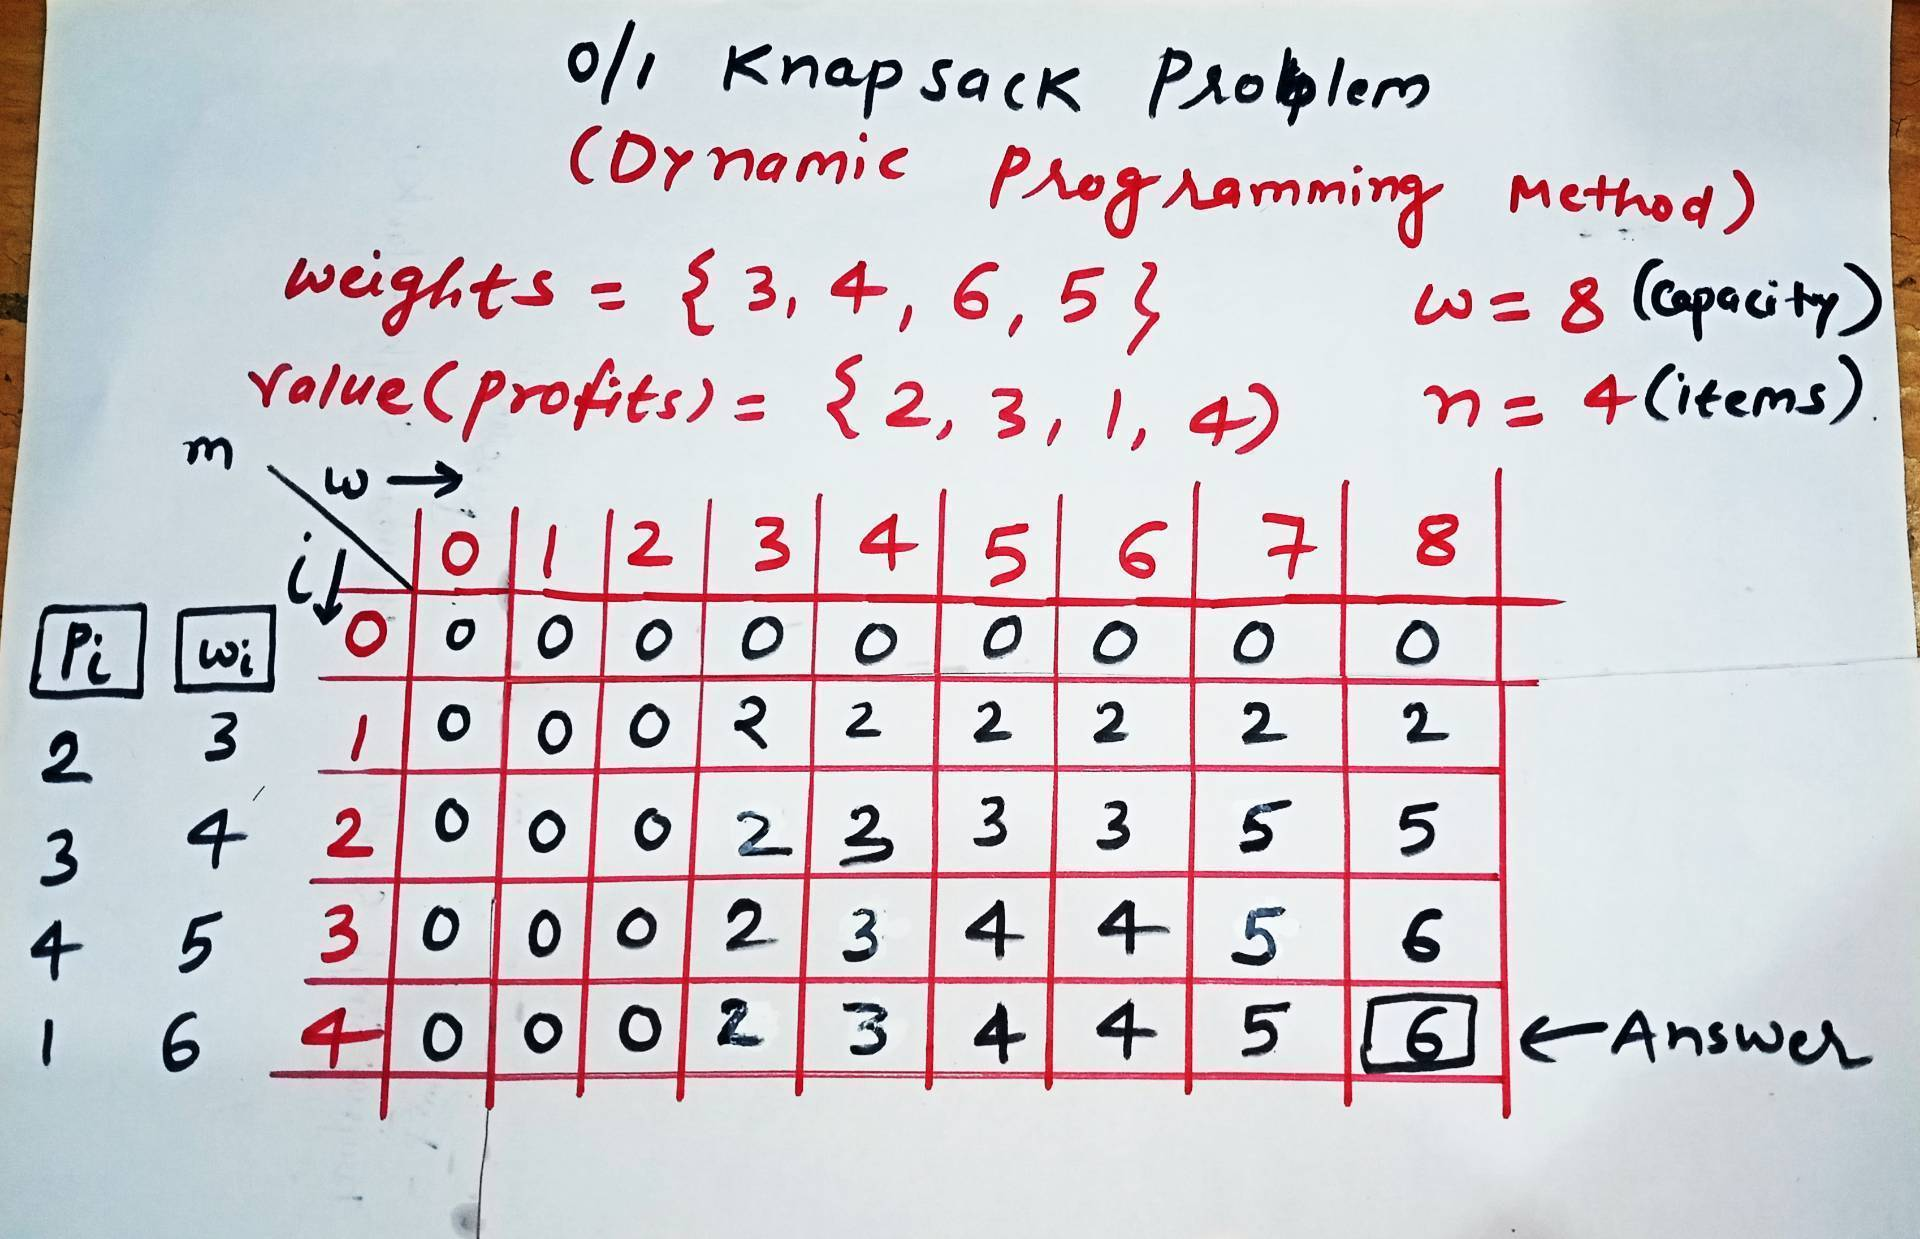 0/1 Knapsack Problem
(Dynamic Programming Method)
weights = { 3, 4, 6, 5 } w = 8 (capacity)
value (profits) = { 2, 3, 1, 4 ) n = 4 (items).
m w →
i ↓ 0 1 2 3 4 5 6 7 8
Pi wi 0 0 0 0 0 0 0 0 0 0
2 3 1 0 0 0 2 2 2 2 2 2
3 4 2 0 0 0 2 3 3 3 5 5
4 5 3 0 0 0 2 3 4 4 5 6
1 6 4 0 0 0 2 3 4 4 5 6 ← Answer